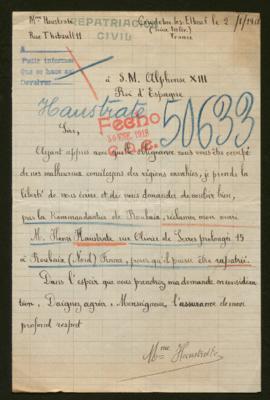 Mme Haustrate
Rue Thibault 11
REPATRIACION
CIVIL
Caudebec les Elbeuf le 2/1/1918
(Seine Infer.)
France
A
Pedir informes
Que se haga
Devolver
à S.M. Alphonse XIII
Roi d'Espagne
Haustrate
50633
Fecho
C.D.C.
Sire,
Ayant appris avec quelle obligeance vous vous êtes occupé
de nos malheureux concitoyens des régions envahies, je prends la
liberté de vous écrire et de vous demander de vouloir bien,
par la Kommandantur de Roubaix, réclamer mon mari
M. Henri Haustrate rue Olivier de Serres prolongée 15
à Roubaix (Nord) France, pour qu'il puisse être rapatrié.
Dans l'espoir que vous prendrez ma demande en considéra
tion, Daignez agréer, Monseigneur, l'assurance de mon
profond respect
Mme Haustrate